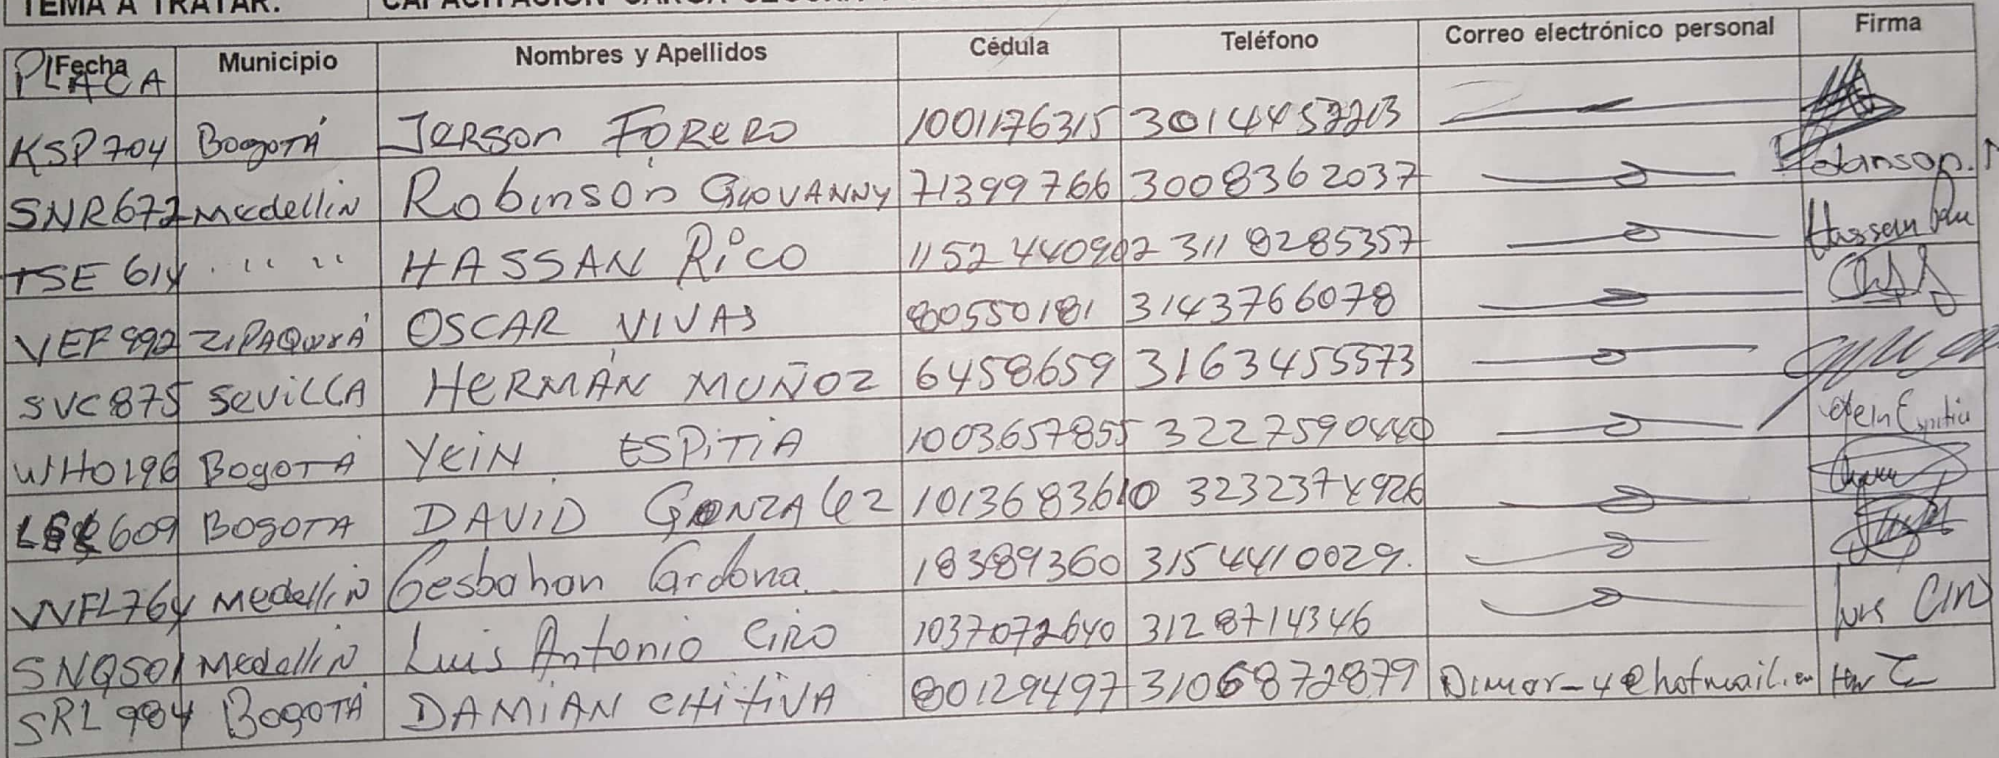 TEMA A TRATAR: CAPACITACIÓN CARGA
Fecha Municipio Nombres y Apellidos Cédula Teléfono Correo electrónico personal Firma
PLACA
KSP704 Bogotá Jerson Forero 1001176315
SNR672 Medellin Robinson Giovanny 71399766 3008362037 Robinson.
TSE 614 " " " " HASSAN Rico 1152440902 3118285357 Hassan
VEF992 ZIPAQuirÁ OSCAR VIVAS 80550181 3143766078
SVC875 SeviLLA HerMÁN MUÑOZ 6458659 3163455573
WHO196 Bogotá YeiN ESPiTiA 1003657855 3227590440 Yein Espitia
609 BogoTA DAViD GONZALEZ 1013683610 3232374926
WFL764 Medellin Gesbahan Cardona 18389360 3154410029.
SNQ501 Medellin Luis Antonio Ciro 1037072640 3128714346 Luis Ciro
SRL984 BogoTÁ DAMiÁN CHiTiVA 80129497 3106872879